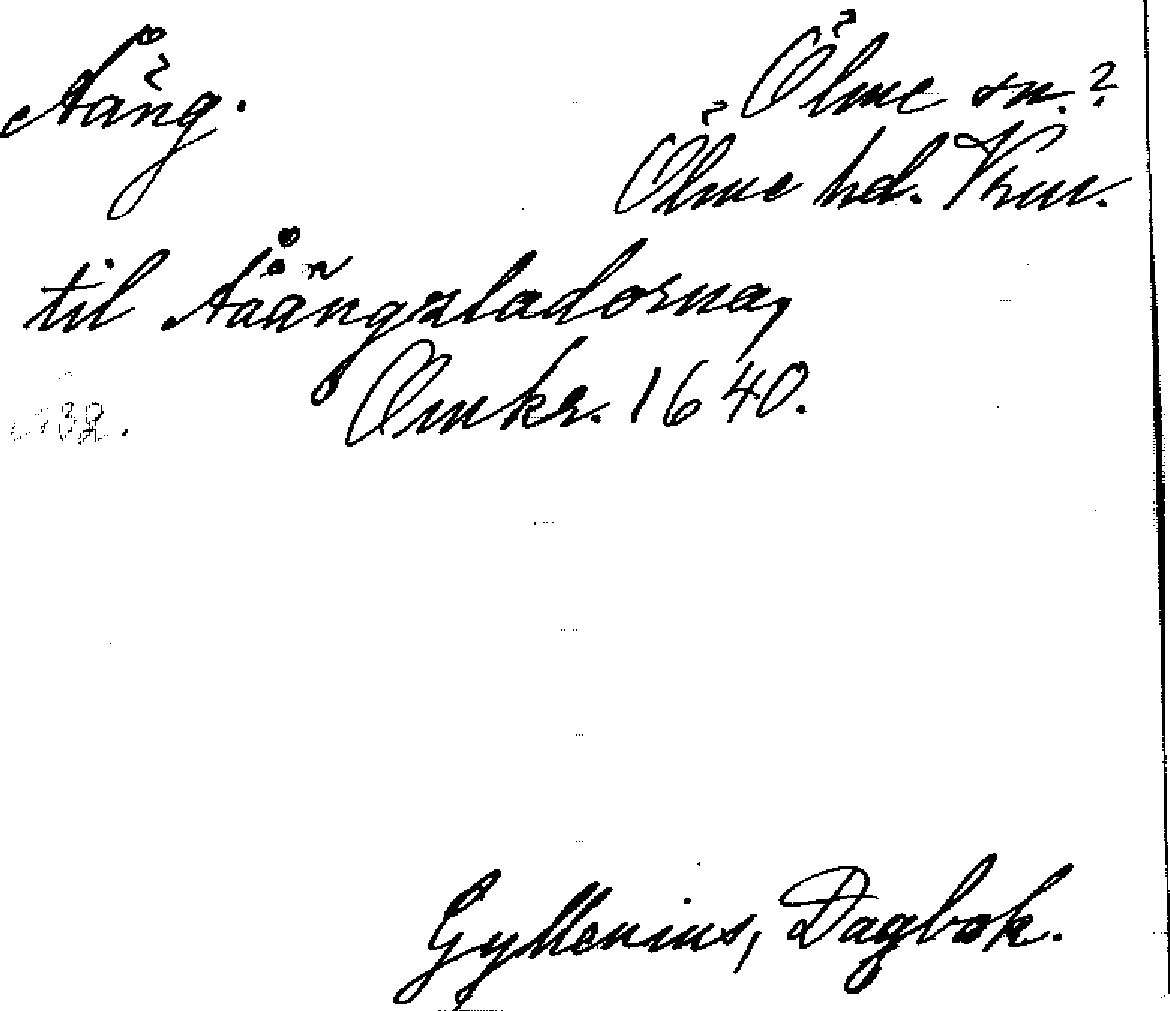 Åäng. Ölme sn.?
Ölme hd. Vrm.
til Åaängsladorna,
Omkr. 1640.
Gyllenius, Dagbok.